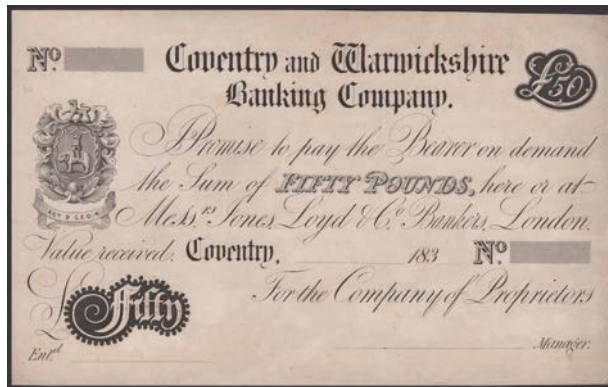 No. Coventry and Warwickshire £50
Banking Company.
I Promise to pay the Bearer on demand
the Sum of FIFTY POUNDS, here or at
Mess.rs Jones, Loyd & Co. Bankers, London.
ACT 7 GEO. 4
Value received. Coventry, 183 No.
£ Fifty
For the Company of Proprietors
Ent.d Manager.